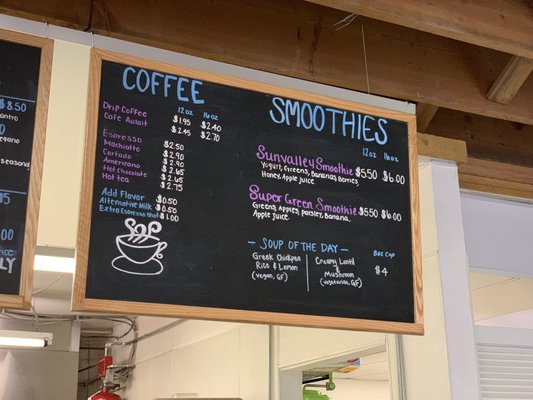 $8.50
COFFEE
12oz 16oz
Drip Coffee $1.95 $2.40
Cafe Aulait $2.45 $2.70
Espresso $2.50
Machiatto $2.90
Cortado $2.90
Americano $2.50
Hot Chocolate $2.75
Hot tea $2.75
Add Flavor $0.50
Alternative Milk $0.50
Extra Espresso Shot $1.00
SMOOTHIES
12oz 16oz
Sunvalley Smoothie $550 $6.00
Yogurt, Greens, Bananas, Berries,
Honey, Apple juice.
Super Green Smoothie $550 $6.00
Greens, Apples, parsley, Banana,
Apple Juice.
- SOUP OF THE DAY -
8oz Cup
$4
Greek Chickpea
Rice & Lemon
(vegan, GF)
Creamy Lentil
&
Mushroom
(vegetarian, GF)